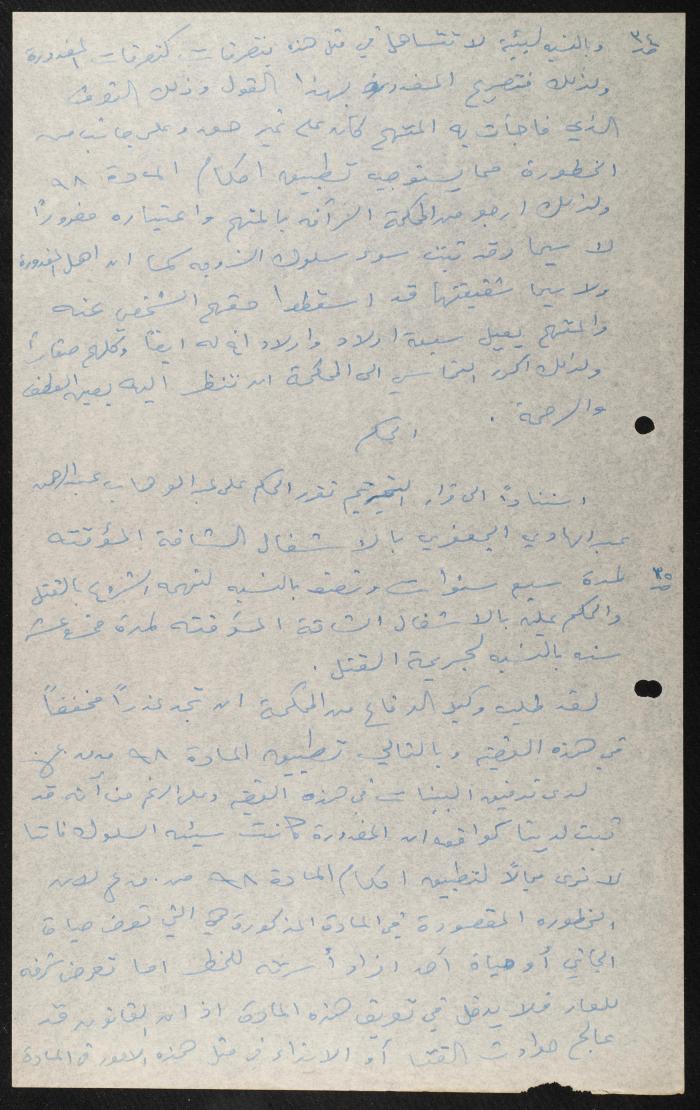 ص٣٤
وبالنسبه لبيئة لا تتساهل في مثل هذه تصرفات كتصرفات المغدورة
ولذلك فتصريح المغدورة بهذا القول وذلك التصرف
الذي فاجأت به المتهم كان عمل غير محق وعلى جانب من
الخطورة مما يستوجب تطبيق احكام المادة ٩٨
ولذلك ارجو من المحكمة الرأفه بالمتهم واعتباره معذوراً
لا سيما وقد ثبت سوء سلوك الزوجه كما ان اهل المغدورة
ولا سيما شقيقتها قد اسقطوا حقهم الشخصي عنه
والمتهم يعيل سبعة اولاد واولاد اخ له ايضاً وكلهم صغاراً
ولذلك اكرر التماسي الى المحكمة ان تنظر اليه بعين العطف
والرحمة .
الحكم
استناداً الى قرار التجريم تقرر الحكم على عبد الوهاب عبد الرحمن
عبد الهادي الجعفري بالاشغال الشاقة المؤقته
ص٣٥
لمدة سبع سنوات ونصف بالنسبه لتهمه الشروع بالقتل
والحكم عليه بالاشغال الشاقة المؤقته لمدة خمسة عشر
سنه بالنسبه لجريمة القتل .
لقد طلب وكيل الدفاع من المحكمة ان تجد عذراً مخففاً
في هذه القضيه وبالتالي تطبيق المادة ٩٨
لدى تدقيق البينات في هذه القضيه وعلى الرغم من أنه قد
ثبت لدينا كواقعه ان المغدورة كانت سيئه السلوك فاننا
لا نرى مجالاً لتطبيق احكام المادة ٩٨ من ق ع لان
الخطوره المقصورة في المادة المذكورة هي التي تعرض حياة
الجاني أو حياة أحد افراد أسرته للخطر اما تعرض شرفه
للعار فلا يدخل في تعريف هذه المادة اذ ان القانون قد
عالج حوادث القتل أو الايذاء في مثل هذه الامور في المادة